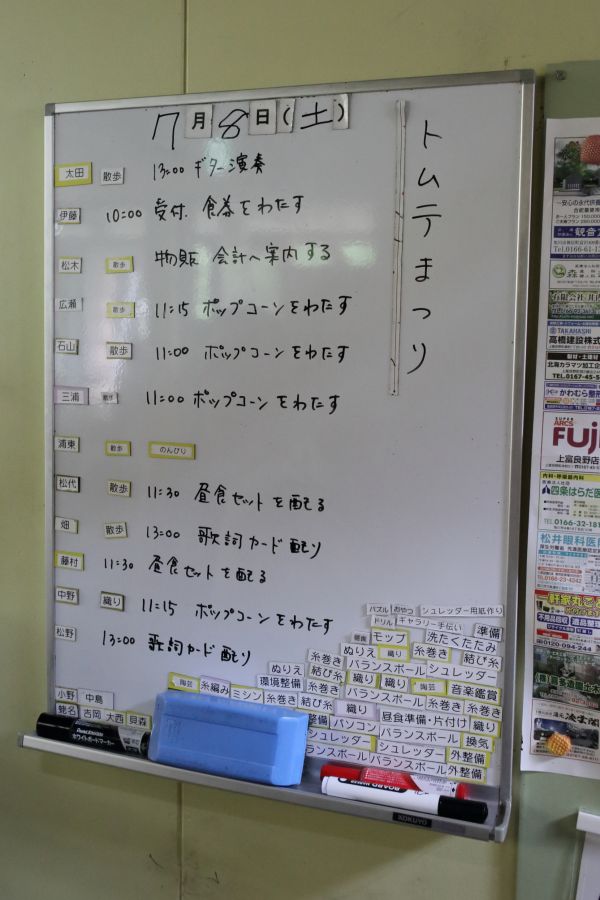 7月8日(土)
トムテまつり
太田 散歩 13:00 ギター演奏
伊藤 10:00 受付、食券をわたす
松木 散歩 物販 会計へ案内する
広瀬 散歩 11:15 ポップコーンをわたす
石山 散歩 11:00 ポップコーンをわたす
三浦 散歩 11:00 ポップコーンをわたす
浦東 散歩 のんびり
松代 散歩 11:30 昼食セットを配る
畑 散歩 13:00 歌詞カード配り
藤村 11:30 昼食セットを配る
中野 織り 11:15 ポップコーンをわたす
松野 13:00 歌詞カード配り
パズル おやつ シュレッダー用紙作り
ドリル ギャラリー手伝い 準備
昼食 モップ 洗たくたたみ
ぬりえ 織り 糸巻き 結び糸
ぬりえ 糸巻き バランスボール シュレッダー
環境整備 結び糸 織り 織り 陶芸 音楽鑑賞
陶芸 糸編み ミシン 糸巻き 結び糸 織り 糸巻き 糸巻き
昼食準備・片付け 織り
パソコン バランスボール 換気
シュレッダー シュレッダー 外整備
バランスボール バランスボール 外整備
小野 中島
蛯名 吉岡 大西 貝森
ホワイトボードマーカー
KOKUYO
TEL.0166-61-12
TAKAHASHI
高橋建設株式
北海カラマツ加工
TEL.0167-45-5
かわむら整形
SUPER
ARCS
FUJ
上富良野店
内科・呼吸器内科
四条はらだ医
TEL 0166-32-181
松井眼科医
TEL.0166-23-4242
軒家丸ごと
不用品回収
0120-094-244